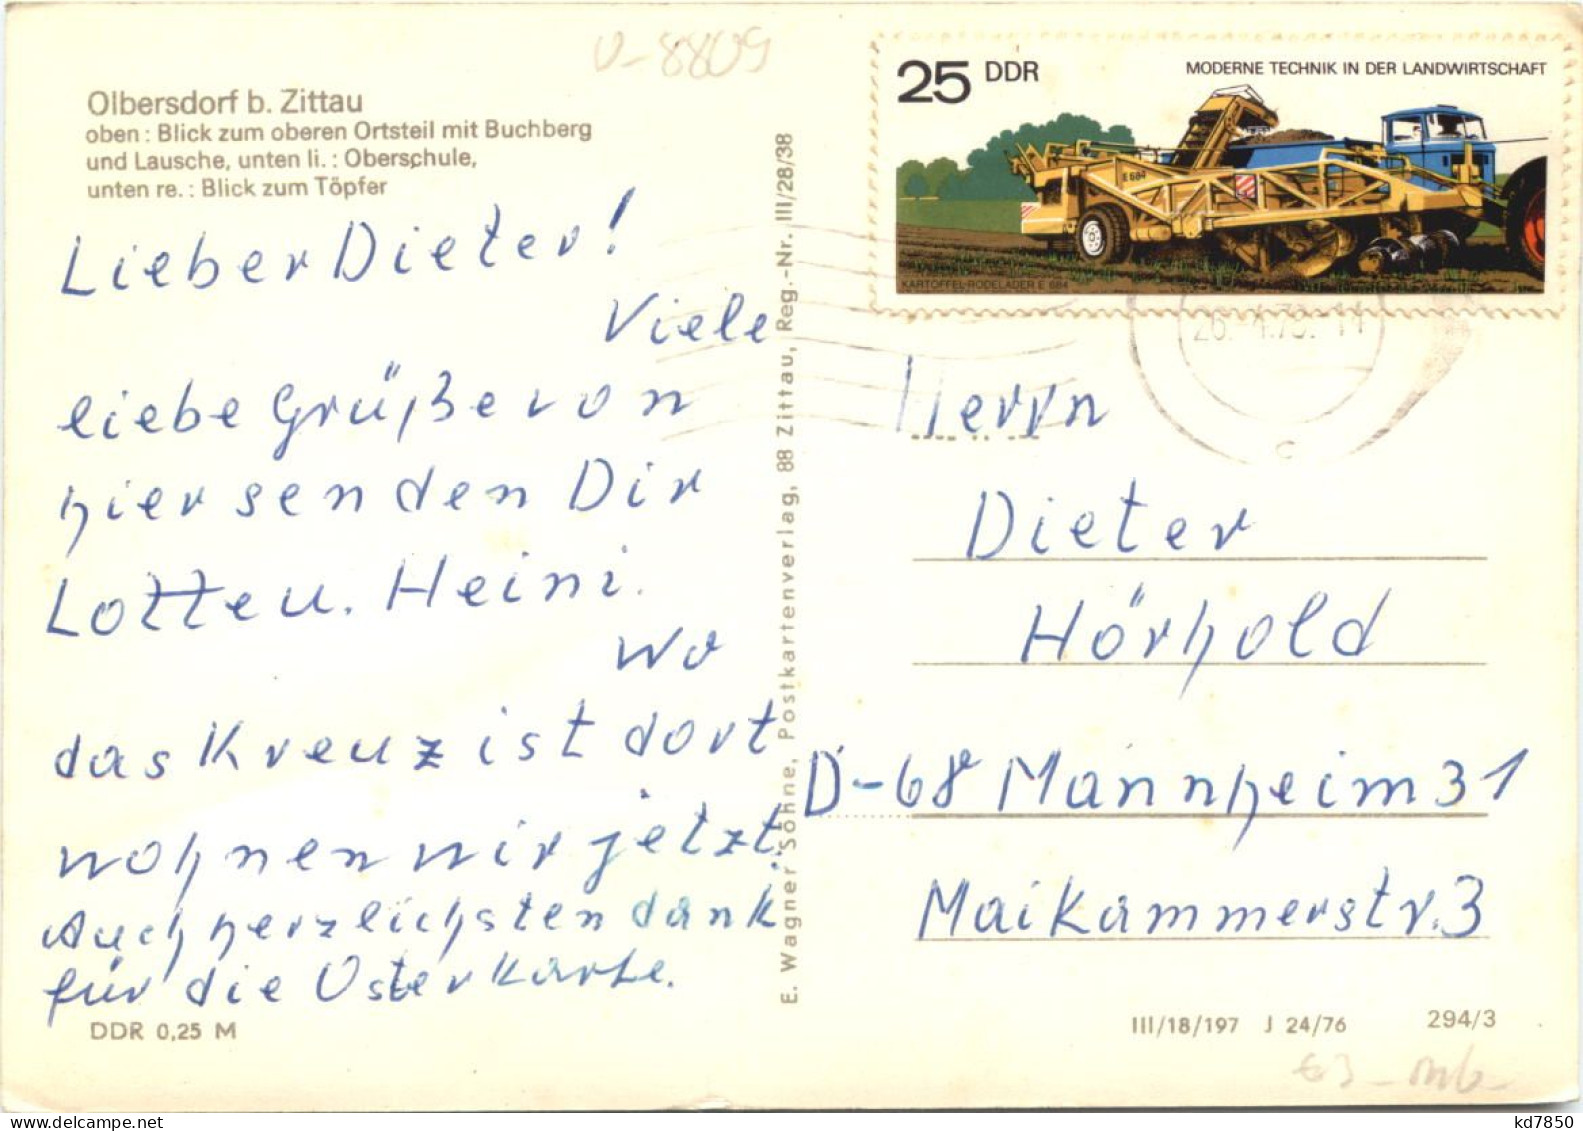 V-8809
Olbersdorf b. Zittau
oben : Blick zum oberen Ortsteil mit Buchberg
und Lausche, unten li. : Oberschule,
unten re. : Blick zum Töpfer
Lieber Dieter!
Viele
liebe Grüße von
hier senden Dir
Lotte u. Heini.
Wo
das Kreuz ist dort
wohnen wir jetzt.
Auch herzlichsten dank
für die Osterkarte.
DDR 0,25 M
E. Wagner Söhne, Postkartenverlag, 88 Zittau, Reg.-Nr. III/28/38
25 DDR
MODERNE TECHNIK IN DER LANDWIRTSCHAFT
E 684
KARTOFFEL-RODELADER E 684
Herrn
Dieter
Hörhold
D-68 Mannheim 31
Maikammerstr. 3
III/18/197 J 24/76
294/3
kd7850